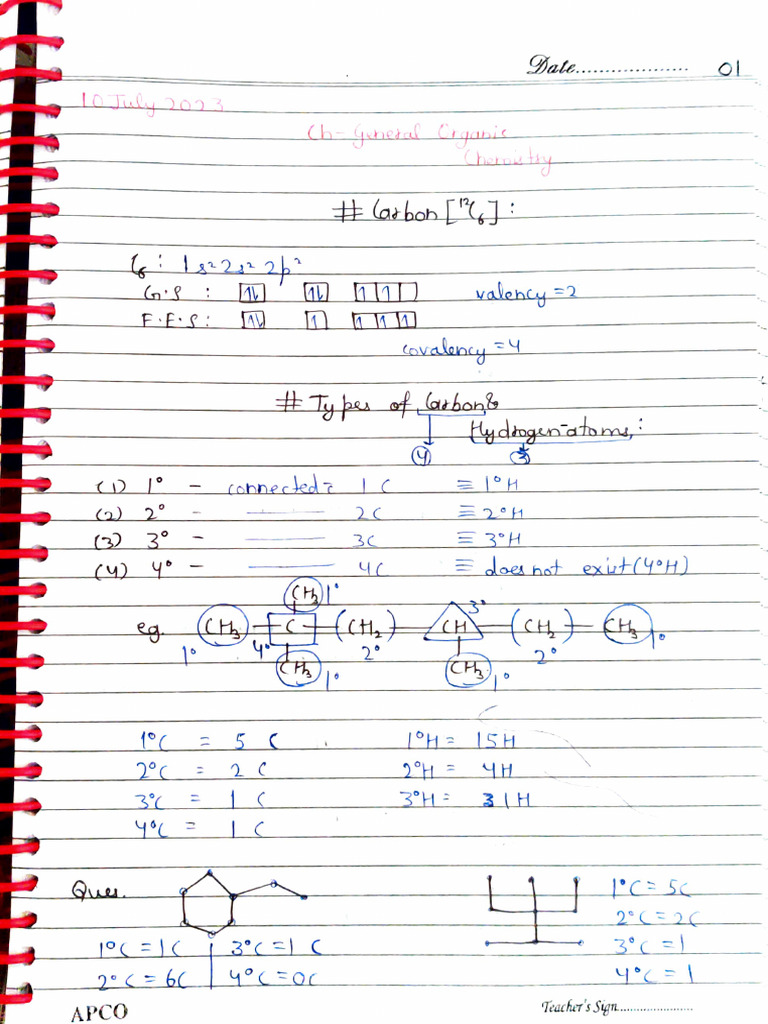 Date.................... 01
10 July 2023
Ch- General Organic
Chemistry
# Carbon [¹²C₆] :
C₆ : 1s² 2s² 2p²
G.S : ⥮ ⥮ 1 1 valency = 2
F.E.S : ⥮ 1 1 1 1
covalency = 4
# Types of Carbon &
Hydrogen-atoms :
(4) (3)
(1) 1° - connected = 1 C ≡ 1°H
(2) 2° - ——— 2C ≡ 2°H
(3) 3° - ——— 3C ≡ 3°H
(4) 4° - ——— 4C ≡ does not exist (4°H)
CH₃ 1°
3°
eg. CH₃ — C — (CH₂) — CH — (CH₂) — CH₃
1° 4° 2° 2° 1°
CH₃ 1° CH₃ 1°
1°C = 5 C 1°H = 15H
2°C = 2 C 2°H = 4H
3°C = 1 C 3°H = 1H
4°C = 1 C
Ques. 1°C = 5C
2°C = 2C
1°C = 1C 3°C = 1 C 3°C = 1
2°C = 6C 4°C = 0C 4°C = 1
APCO Teacher's Sign.......................